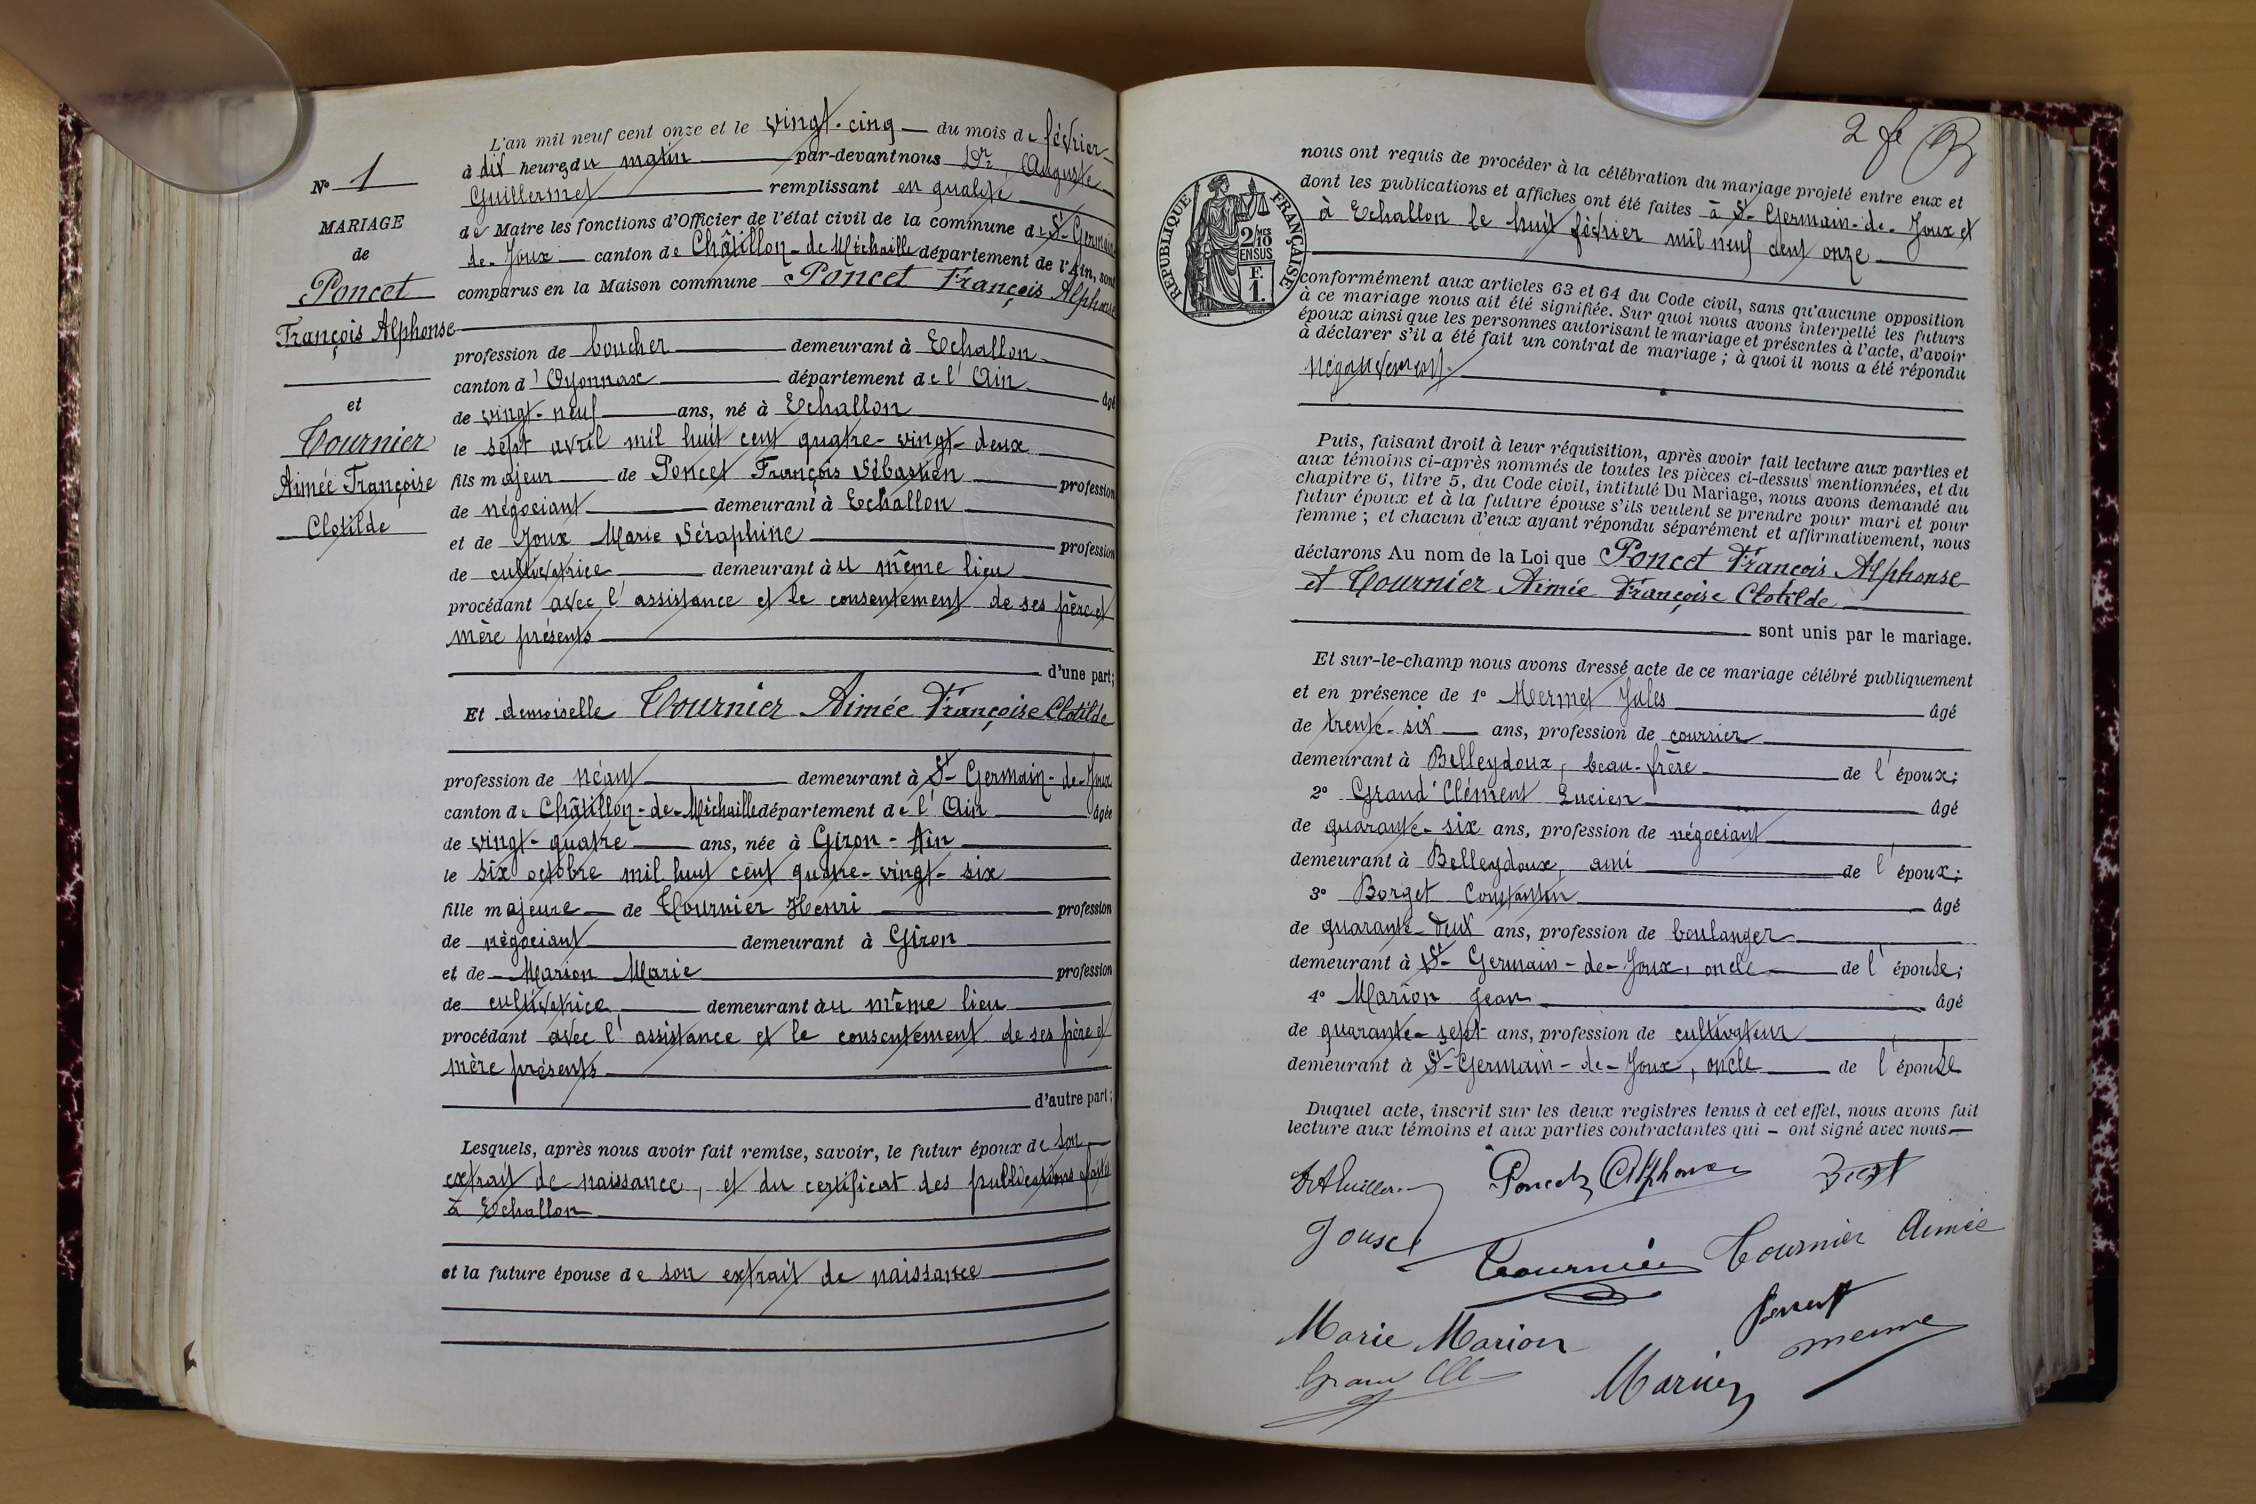 L'an mil neuf cent onze et le vingt-cinq du mois de février
à dix heures du matin par-devant nous Dr, Auguste
Guillermet remplissant en qualité
de Maire les fonctions d'Officier de l'état civil de la commune de St-Germain
de-Joux canton de Châtillon-de-Michaille département de l'Ain, sont
comparus en la Maison commune Poncet François Alphonse
N° 1
MARIAGE
de
Poncet
François Alphonse
et
Tournier
Aimée Françoise
Clotilde
profession de boucher demeurant à Echallon
canton d'Oyonnax département de l'Ain âgé
de vingt-neuf ans, né à Echallon
le sept avril mil huit cent quatre-vingt-deux
fils majeur de Poncet François Sébastien profession
de négociant demeurant à Echallon
et de Joux Marie Séraphine profession
de cultivatrice demeurant au même lieu
procédant avec l'assistance et le consentement de ses père et
mère présents
d'une part;
Et demoiselle Tournier Aimée Françoise Clotilde
profession de néant demeurant à St-Germain-de-Joux
canton de Châtillon-de-Michaille département de l'Ain âgée
de vingt-quatre ans, née à Giron-Ain
le six octobre mil huit cent quatre-vingt-six
fille majeure de Tournier Henri profession
de négociant demeurant à Giron
et de Marion Marie profession
de cultivatrice demeurant au même lieu
procédant avec l'assistance et le consentement de ses père et
mère présents
d'autre part;
Lesquels, après nous avoir fait remise, savoir, le futur époux de son
extrait de naissance, et du certificat des publications faites
à Echallon
et la future épouse de son extrait de naissance
2 fe
RÉPUBLIQUE FRANÇAISE
2/10 MES
EN SUS
F.
1.
nous ont requis de procéder à la célébration du mariage projeté entre eux et
dont les publications et affiches ont été faites à St-Germain-de-Joux et
à Echallon le huit février mil neuf cent onze
conformément aux articles 63 et 64 du Code civil, sans qu'aucune opposition
à ce mariage nous ait été signifiée. Sur quoi nous avons interpellé les futurs
époux ainsi que les personnes autorisant le mariage et présentes à l'acte, d'avoir
à déclarer s'il a été fait un contrat de mariage ; à quoi il nous a été répondu
négativement.
Puis, faisant droit à leur réquisition, après avoir fait lecture aux parties et
aux témoins ci-après nommés de toutes les pièces ci-dessus mentionnées, et du
chapitre 6, titre 5, du Code civil, intitulé Du Mariage, nous avons demandé au
futur époux et à la future épouse s'ils veulent se prendre pour mari et pour
femme ; et chacun d'eux ayant répondu séparément et affirmativement, nous
déclarons Au nom de la Loi que Poncet François Alphonse
et Tournier Aimée Françoise Clotilde
sont unis par le mariage.
Et sur-le-champ nous avons dressé acte de ce mariage célébré publiquement
et en présence de 1° Mermet Jules âgé
de trente-six ans, profession de courrier
demeurant à Belleydoux, beau-frère de l'époux;
2° Grand'Clément Lucien âgé
de quarante-six ans, profession de négociant
demeurant à Belleydoux, ami de l'époux;
3° Borget Constantin âgé
de quarante-deux ans, profession de boulanger
demeurant à St-Germain-de-Joux, oncle de l'épouse;
4° Marion Jean âgé
de quarante-sept ans, profession de cultivateur
demeurant à St-Germain-de-Joux, oncle de l'épouse
Duquel acte, inscrit sur les deux registres tenus à cet effet, nous avons fait
lecture aux témoins et aux parties contractantes qui - ont signé avec nous
Poncet Alphonse
Tournier Tournier Aimée
Marie Marion
Marion